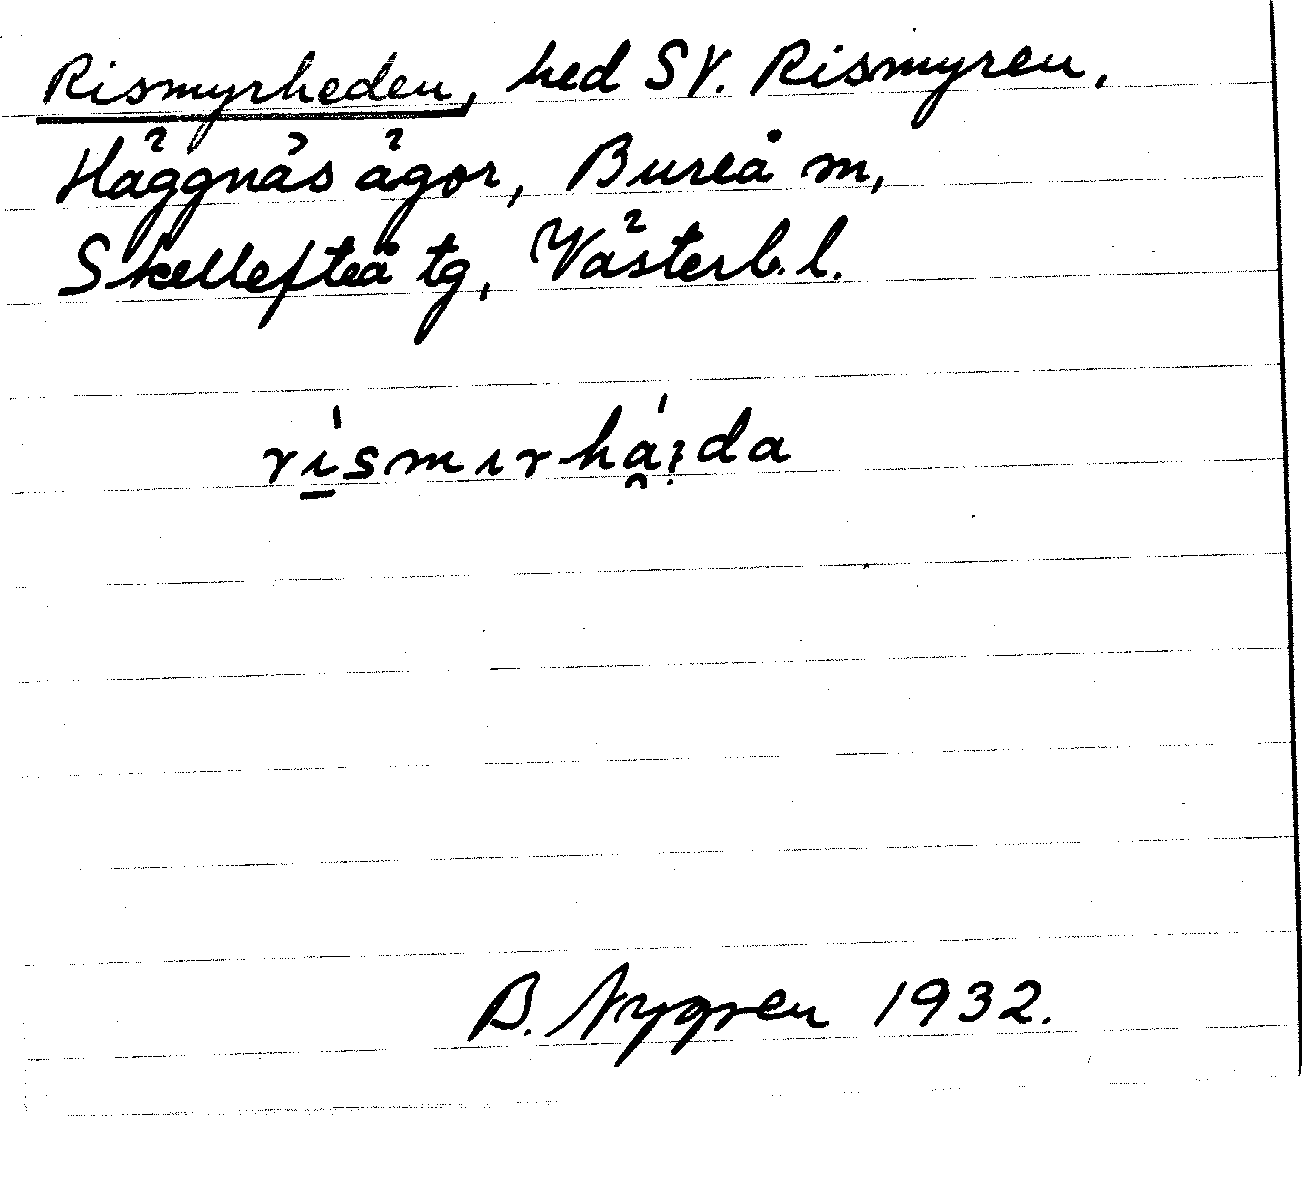 Rismyrheden, hed SV. Rismyren,
Häggnäs ägor, Bureå m,
Skellefteå tg, Västerb. l.
rí̲smırhá̯i̯da
B. Nygren 1932.